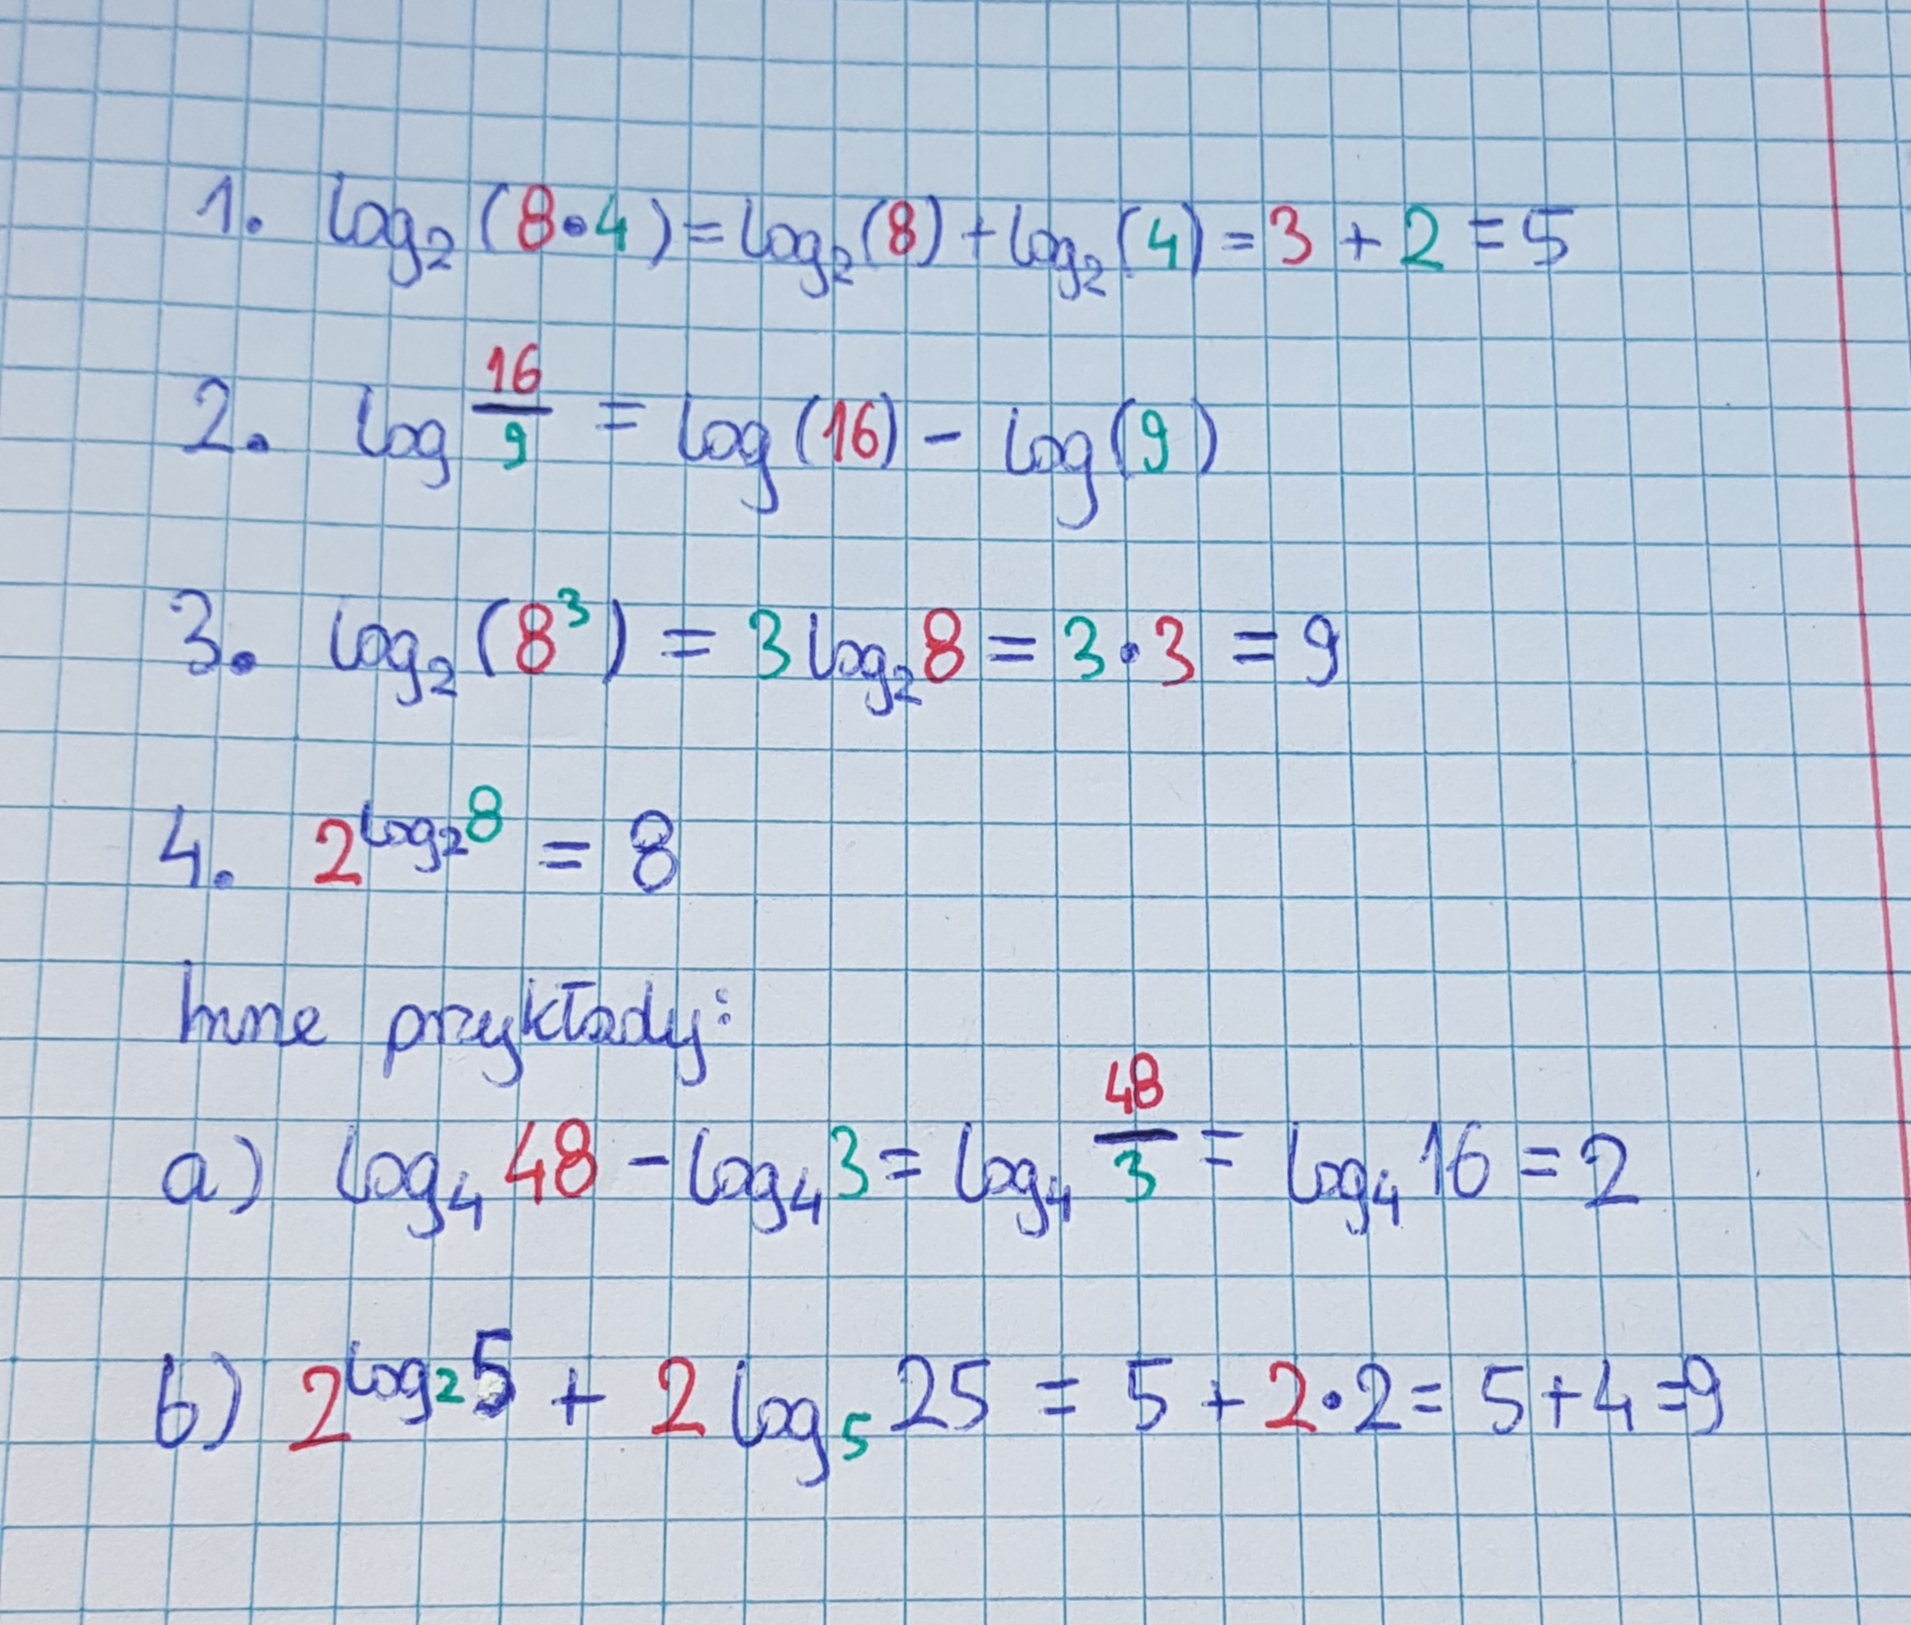 1. log₂(8•4)=log₂(8)+log₂(4)=3+2=5
2. log 16/9 = log(16) - log(9)
3. log₂(8³) = 3log₂8 = 3•3 = 9
4. 2^log₂8 = 8
Inne przykłady:
a) log₄48 - log₄3 = log₄ 48/3 = log₄16 = 2
b) 2^log₂5 + 2log₅25 = 5+2•2= 5+4=9